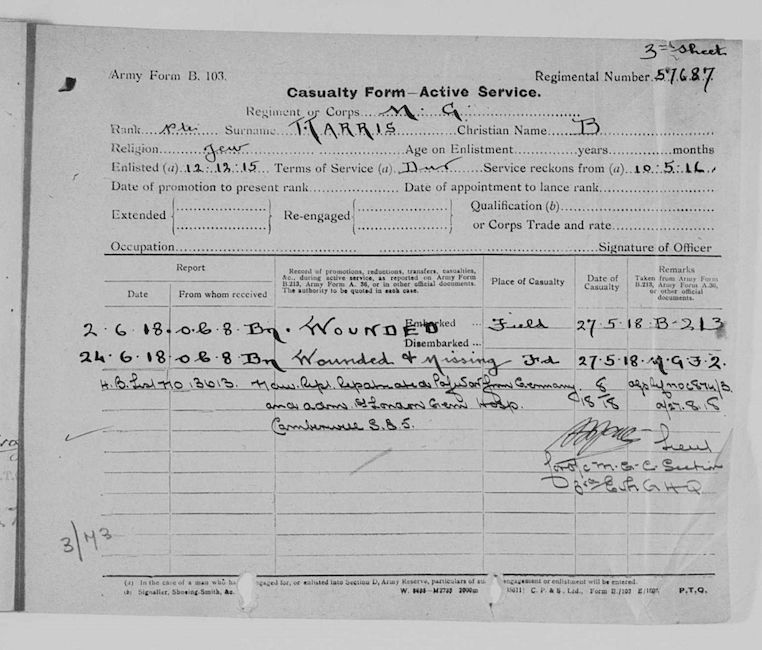 3rd Sheet
Army Form B. 103.
Regimental Number 57687
Casualty Form—Active Service.
Regiment or Corps M. G.
Rank Pte Surname HARRIS Christian Name B
Religion Jew Age on Enlistment years months
Enlisted (a) 12.12.15 Terms of Service (a) Dur Service reckons from (a) 10.5.16
Date of promotion to present rank Date of appointment to lance rank
Extended Re-engaged Qualification (b)
or Corps Trade and rate
Occupation Signature of Officer
Report
Date From whom received
Record of promotions, reductions, transfers, casualties, &c., during active service, as reported on Army Form B.213, Army Form A. 36, or in other official documents. The authority to be quoted in each case.
Place of Casualty
Date of Casualty
Remarks
Taken from Army Form B.213, Army Form A.36, or other official documents.
Embarked ...
2.6.18. O.C. 8. Bn. WOUNDED Field 27.5.18. B-213
Disembarked ...
24.6.18. O.C. 8 Bn Wounded & Missing Fd. 27.5.18.
H.B. List No. Repatriated from Germany
and adm. London Gen. Hosp.
Camberwell S.E.5.
Lieut
M.G.C. Section
3rd Ech GHQ
3/43
(a) In the case of a man who has engaged for, or enlisted into Section D, Army Reserve, particulars of engagement or enlistment will be entered.
(b) Signaller, Shoeing-Smith, &c. C. P. & S., Ltd., Form B./103 P.T.O.